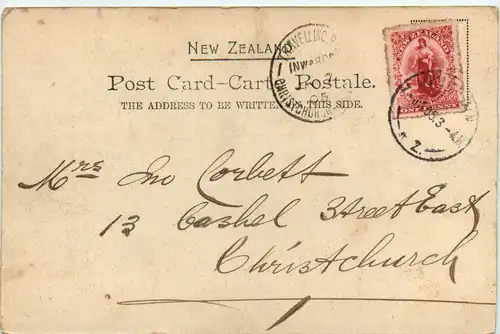 NEW ZEALAND
Post Card-Carte Postale.
THE ADDRESS TO BE WRITTEN THIS SIDE.
TRAVELLING P
INWARD
CHRISTCHURCH
NEW ZEALAND
ONE PENNY
Z.
Mrs Jno Corbett
13 Cashel Street East
Christchurch